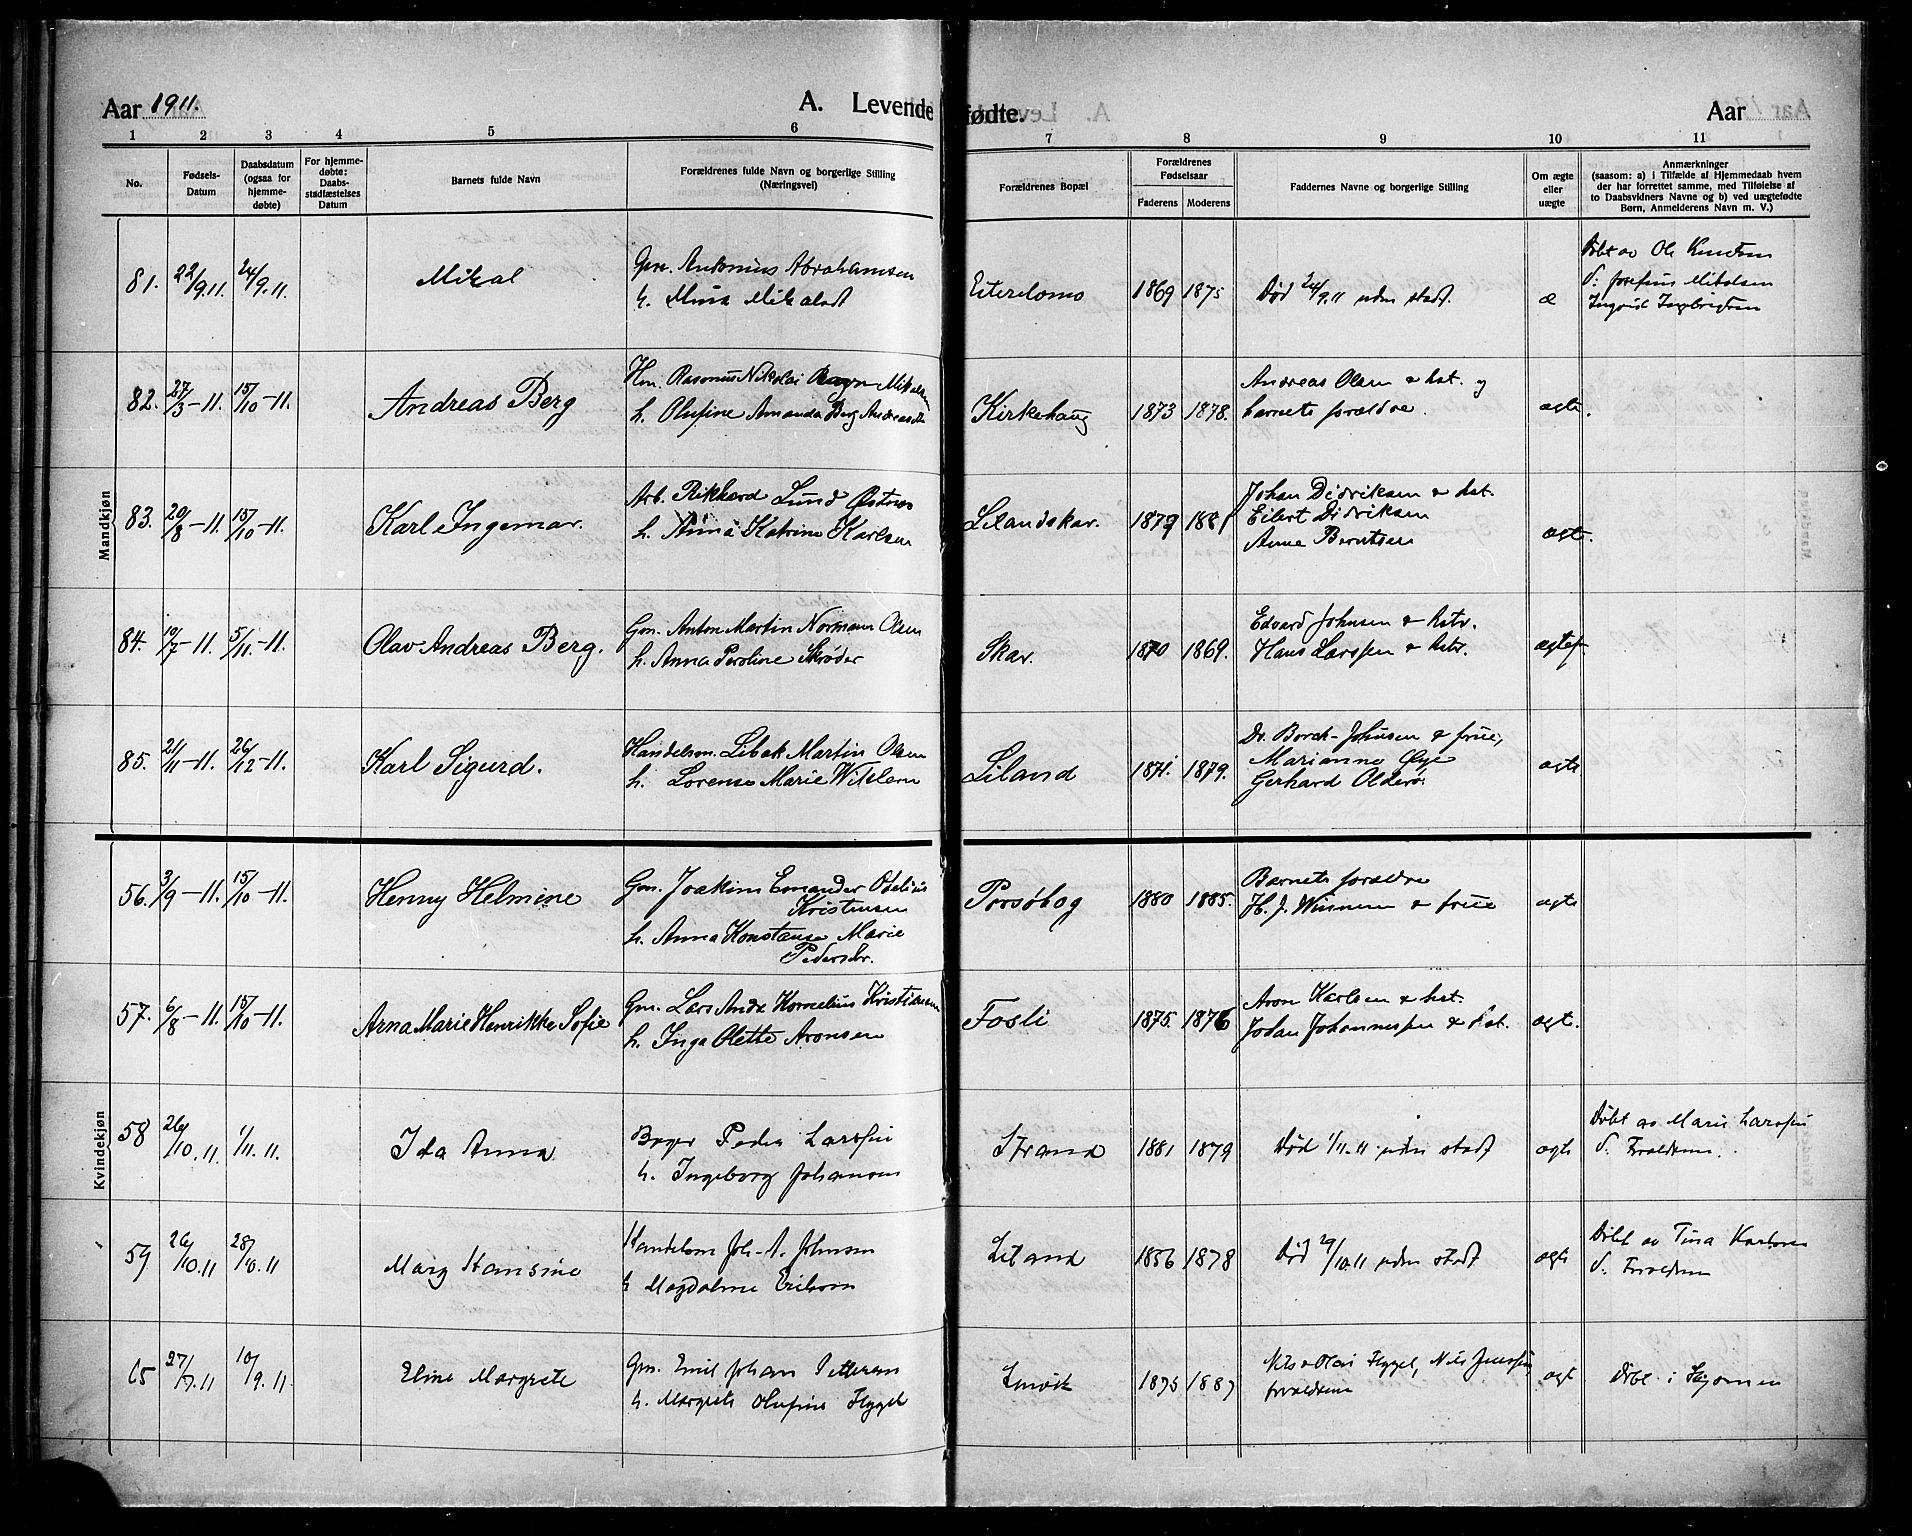 Aar 1911.
A. Levende
fødte.
Aar
1 2 3 4 5 6 7 8 9 10 11
No.
Fødsels-
Datum
Daabsdatum
(ogsaa for
hjemme-
døbte)
For hjemme-
døbte:
Daabs-
stadfæstelses
Datum
Barnets fulde Navn
Forældrenes fulde Navn og borgerlige Stilling
(Næringsvei)
Forældrenes Bopæl
Forældrenes
Fødselsaar
Faderens Moderens
Faddernes Navne og borgerlig Stilling
Om ægte
eller
uægte
Anmærkninger
(saasom: a) i Tilfælde af Hjemmedaab hvem
der har forrettet samme, med Tilføielse af
to Daabsvidners Navne og b) ved uægtefødte
Børn, Anmelderens Navn m. V.)
Mandkjøn
81. 22/9.11. 24/9.11. Mikal
Gm. Antonius Abrahamsen
h. Mina Mikalsdt
1869 1875
Død 24/9.11 uden stadf.
æ
Døbt av Ole Knudsen
V: Josefine Mikalsen
Ingvid Ingbrigtsen
82. 27/3-11. 15/10-11. Andreas Berg
Hm. Rasmus Nikolai Mikalsen
h. Olufine Amanda Berg Andreasdtr
Kirkehaug 1873 1878.
Andreas Olsen & hst. og
barnets forældre.
ægte.
83. 20/8-11. 15/10-11. Karl Ingemar.
Arb. Rikhard Lund Østnes
h. Anna Katrine Karlsen
Lilandskar. 1879 1881
Johan Didriksen & hst.
Eilert Didriksen
Anne Berntsen
ægt.
84. 10/7-11. 5/11-11. Olav Andreas Berg.
Gm. Anton Martin Normann Olsen
h. Anna Peroline Skrøder
Skar. 1870 1869.
Edvard Johnsen & hstr.
Hans Larssen & hstr.
ægtef
85. 21/11-11. 26/12-11. Karl Sigurd.
Handelsm. Libak Martin Olsen
h. Lorense Marie Wilslem
Liland 1871. 1879.
Dr. Borch-Johnsen & frue,
Marianne Øye
Gerhard Olderø.
ægte
Kvindekjøn
56. 3/9-11. 15/10-11. Henny Helmine
Gm. Joakim Emander Odelius
Kristensen
h. Anna Konstanse Marie
Pedersdr.
Porsøbog 1880 1885.
Barnets forældre
H. J. Winnem & frue
ægte
57. 6/8-11. 15/10-11. Arna Marie Henrikke Sofie
Gm. Lars Andr Kornelius Kristiansen
h. Inga Olette Aronsen
Fosli 1875. 1876
Aron Karlsen & hst.
Johan Johannessen & hst.
ægt.
58 26/10.11. 1/11.11. Ida Anna
Bager Peder Larssen
h. Ingeborg Johansen
Strand 1881 1879
Død 1/11.11 uden stadf
ægte
Døbt av Marie Larssen
V. Forældrene.
59 26/10.11 28/10.11 Mary Hansine
Handelsm Joh. A. Johnsen
h Magdalene Eriksen
Liland 1856 1878
Død 29/10.11 uden stadf
ægte
Døbt av Tina Karlsen
V. Forældrene
65 27/7.11 10/9.11. Eline Margrete
Gm. Emil Johan Pettersen
h. Margrete Olufine Hygel
1875 1887
Nils & Olai Hygel, Nils Jenssen,
forældrene
ægt
Døbt i Skjomen